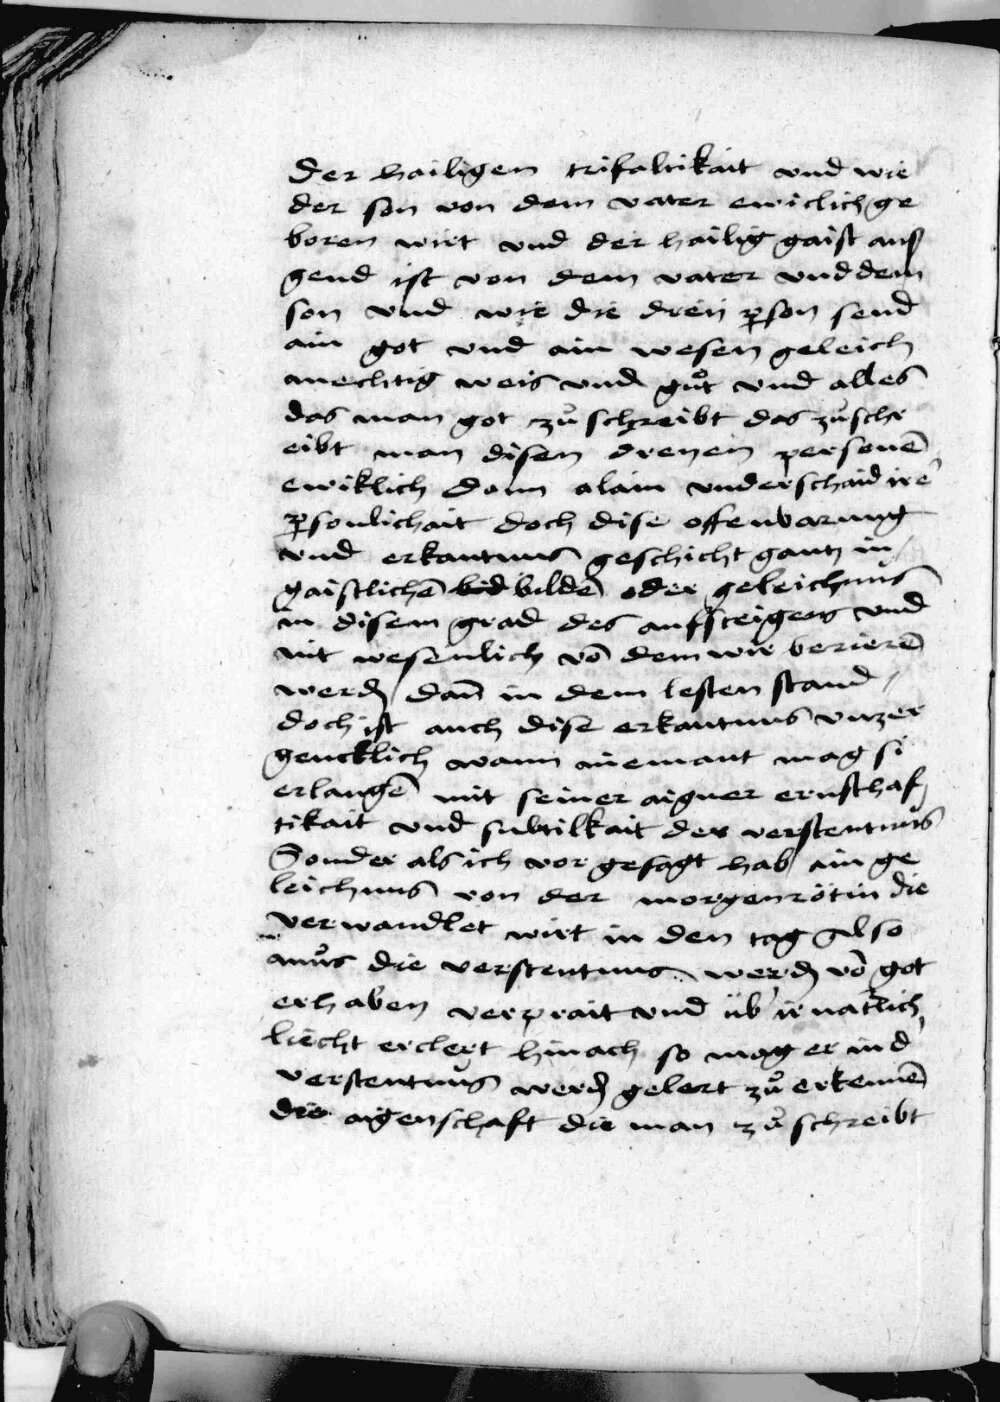 Der hailigen trifaltikait vnd wie
der son von dem vater ewiclich ge
boren wirt vnd der hailig gaist aus
gend ist von dem vater vnd dem
son vnd wie die dreii pson send
ain got vnd ain wesen geleich
mechtig weis vnd gůt vnd alles
das man got zů schreibt das zůschr
eibt man disen dreyen personē
ewiklich dann alain vnderschaid irē
psonlichait doch dise offenbarung
vnd erkantnus geschicht gantz in
gaistlichē bildē oder geleichnus
in disem grad des aufsteigens vnd
nit wesenlich vō dem wir berierē
werd dañ in dem lesten stand
doch ist auch dise erkantnus vnzer
gencklich wann niemant mag si
erlangē mit seiner aigner ernsthaf
tikait vnd subtilkait der verstentnus
Sonder als ich vor gesagt hab ain ge
leichnus von der morgenrötin die
verwandlet wirt in den tag Also
můs die verstentnus werd vō got
erhaben verprait vnd üb' ir natirlich
liecht erclert hinach so mag er in d'
verstentnus werd gelert zů erkennē
die aigenschaft die man zů schreibt